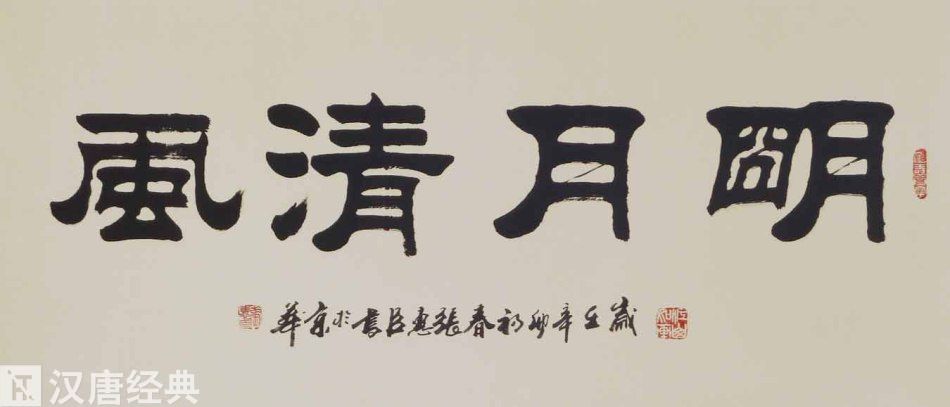 朙月清風
歲在辛卯初春張惠臣書於京華
汉唐经典